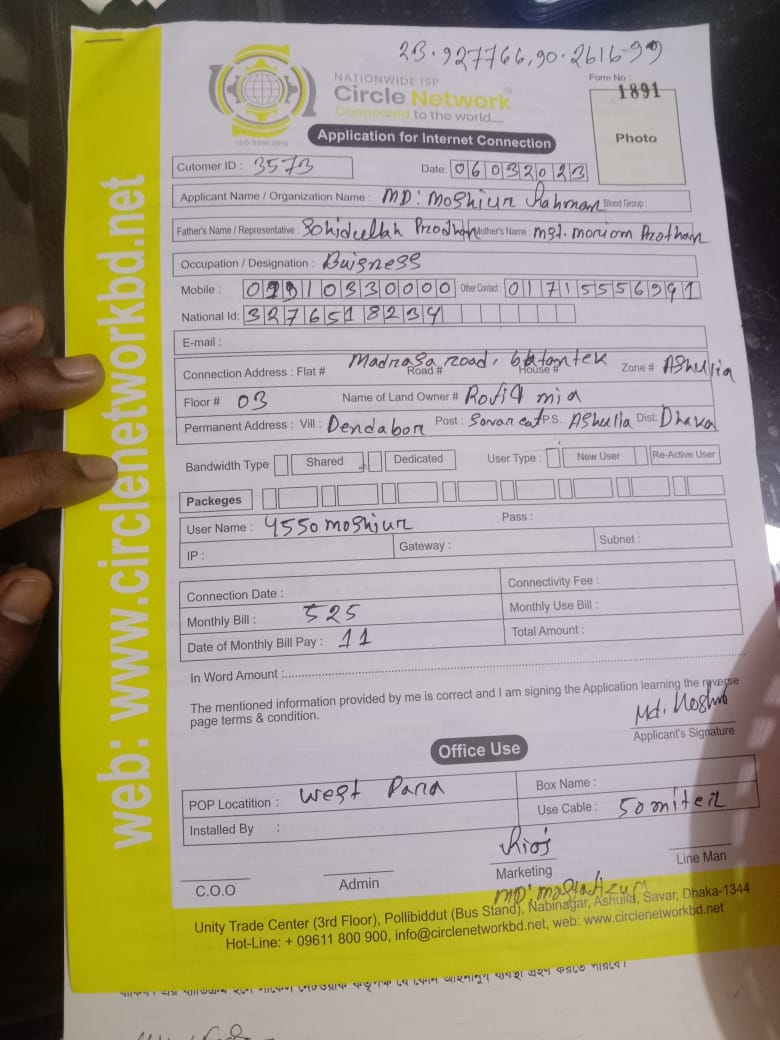 23.927766,90.261699
Form No :
1891
NATIONWIDE ISP
Circle Network
Connected to the world.....
ISO 9001:2015
Photo
Application for Internet Connection
Cutomer ID : 3573 Date: 06032023
Applicant Name / Organization Name : MD: Moshiur Rahman Blood Group :
Father's Name / Representative : Sohidullah Prodhan Mother's Name : mst. moriom Prothan
Occupation / Designation : Buisness
Mobile : 0 10330000 Other Contact : 01715556991
National Id: 3276518234
E-mail :
Connection Address : Flat # Madrasa road, Road # House # Zone # AShulia
Floor # 03 Name of Land Owner # Rofiq mia
Permanent Address : Vill : Dendabor Post : Savar P.S. AShulla Dist: Dhaka
Bandwidth Type Shared Dedicated User Type : New User Re-Active User
Packeges
User Name : 4550moshiur Pass :
IP : Gateway : Subnet :
Connection Date : Connectivity Fee :
Monthly Bill : 525 Monthly Use Bill :
Date of Monthly Bill Pay : 11 Total Amount :
In Word Amount :
The mentioned information provided by me is correct and I am signing the Application learning the reverse
page terms & condition.
Md. Moshiu
Applicant's Signature
Office Use
POP Locatition : West Para Box Name :
Installed By : Use Cable : 50 miter
C.O.O Admin Marketing Line Man
MD:
Unity Trade Center (3rd Floor), Pollibiddut (Bus Stand), Nabinagar, Ashulia, Savar, Dhaka-1344
Hot-Line: + 09611 800 900, info@circlenetworkbd.net, web: www.circlenetworkbd.net
web: www.circlenetworkbd.net